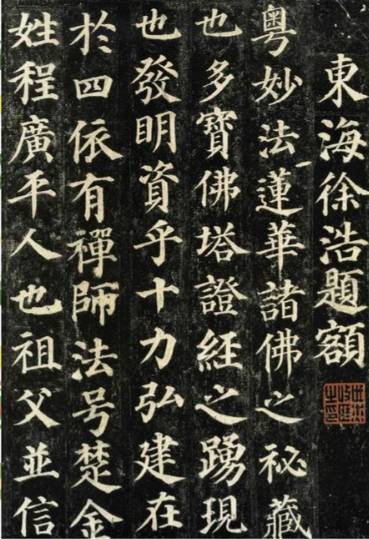 東海徐浩題額
粤妙法蓮華諸佛之祕藏
也多寶佛塔證經之踴現
也發明資乎十力弘建在
於四依有禪師法号楚金
姓程廣平人也祖父並信